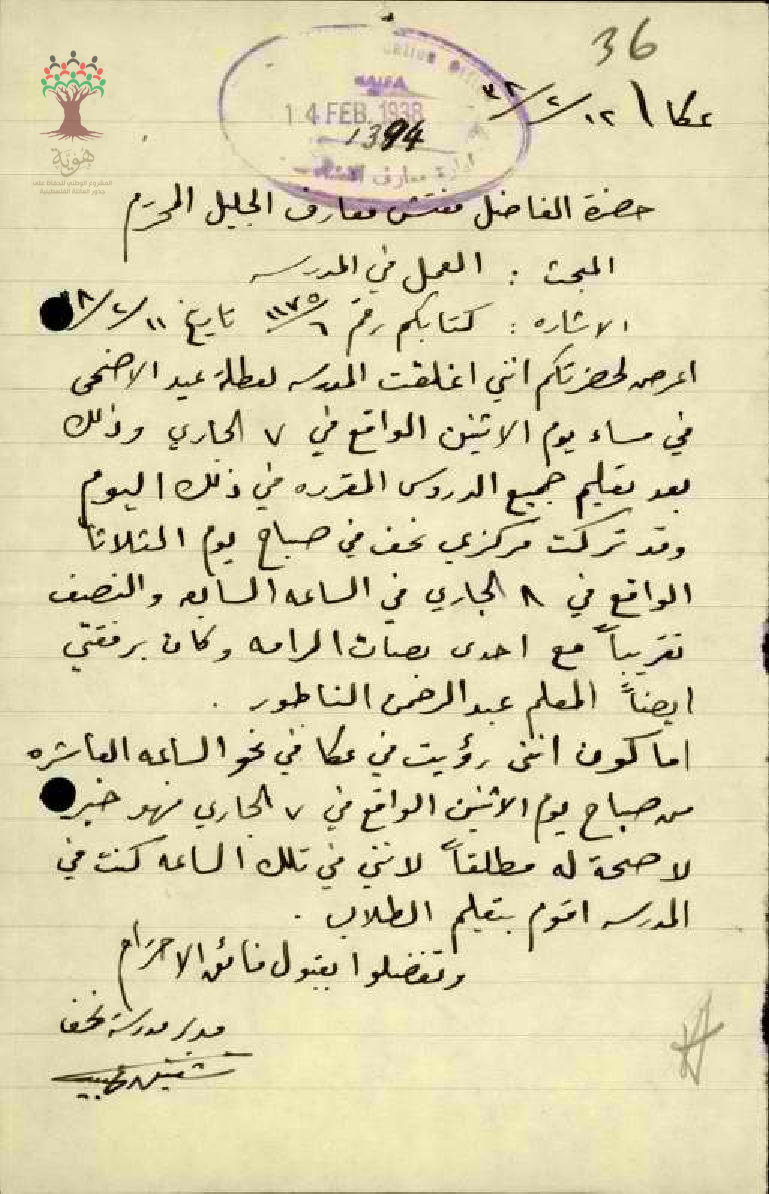 36
عكا ١٢/٢/٣٨
HAIFA
14 FEB. 1938
1394
ادارة معارف
هَوِيّة
المشروع الوطني للحفاظ على
جذور العائلة الفلسطينية
حضرة الفاضل مفتش معارف الجليل المحترم
المبحث : العمل في المدرسه
الاشاره : كتابكم رقم ١١٧٥/٦ تاريخ ١١/٢/٣٨
اعرض لحضرتكم انني اغلقت المدرسه لعطلة عيد الاضحى
في مساء يوم الاثنين الواقع في ٧ الجاري وذلك
بعد تعليم جميع الدروس المقرره في ذلك اليوم
وقد تركت مركزي نحف في صباح يوم الثلاثاء
الواقع في ٨ الجاري في الساعه السابعه والنصف
تقريباً مع احدى بصات الرامه وكان برفقتي
ايضاً المعلم عبد الرحمن الناطور .
اما كون انني رؤيت في عكا في نحو الساعه العاشره
من صباح يوم الاثنين الواقع في ٧ الجاري فهو خبر
لا صحة له مطلقاً لانني في تلك الساعه كنت في
المدرسه اقوم بتعليم الطلاب .
وتفضلوا بقبول فائق الاحترام
مدير مدرسة نحف